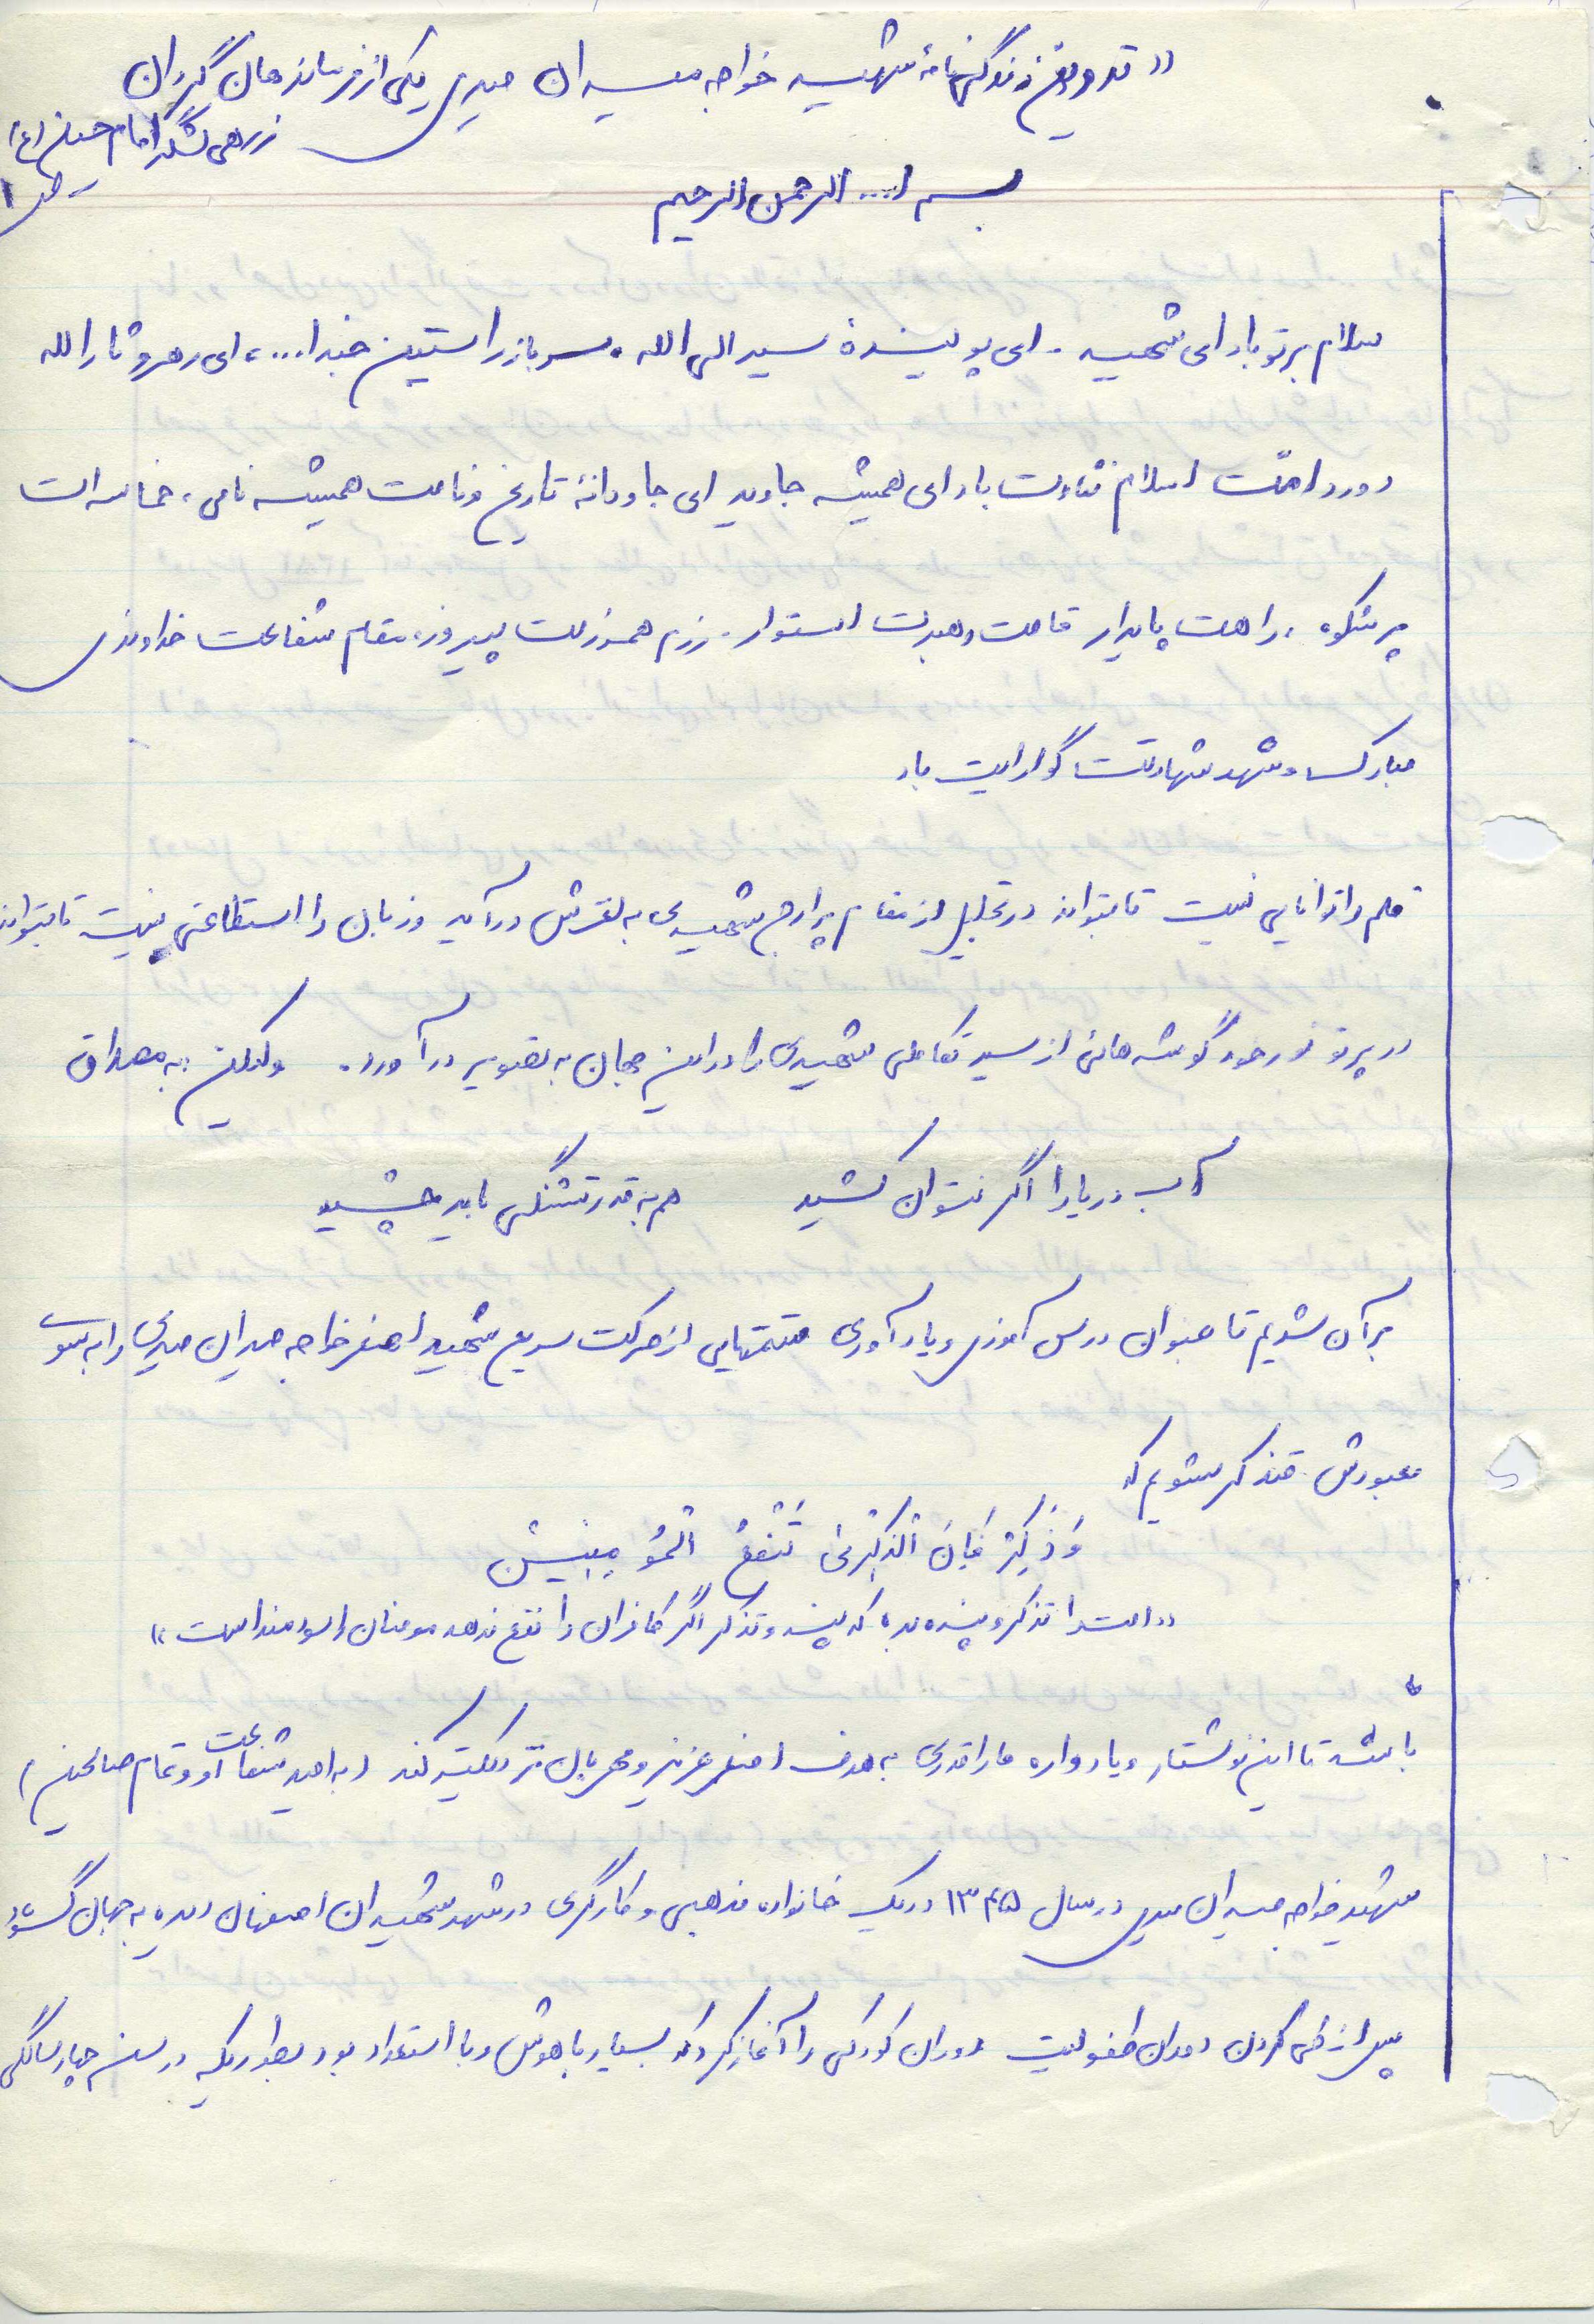 «تدوین زندگینامهٔ شهید خواجه میدان میری یکی از فرماندهان گردان
زرهی لشگر امام حسین (ع)
ص ۱
بسم ا... الرحمن الرحیم
سلام بر تو باد ای شهید . ای پویندهٔ سیر الی الله . سرباز راستین خدا... ، ای رهرو ثارالله
درود امّت اسلام نثارت باد ای همیشه جاوید ای جاودانهٔ تاریخ و نامت همیشه نامی ،
پر شکوه ، راهت پایدار قامت رهبرت استوار . رزم همرزمت پیروز ، مقام شفاعت خداوندی
مبارک و شهد شهادتت گوارایت باد
قلم را توانایی نیست تا بتواند در تجلیل از مقام پر ارج شهیدی به لغزش درآید و زبان را استطاعتی نیست تا بتواند
در پرتو نور خود گوشه هائی از سیر تکاملی شهیدی را در این جهان به تصویر درآورد . ولیکن به مصداق
آب دریا را اگر نتوان کشید هم به قدر تشنگی باید چشید
بر آن شدیم تا عنوان درس آموزی و یادآوری از حرکت سریع شهید اصغر خواجه میدان میری را به سوی
معبودش متذکر میشویم که
وَ ذَکِّرْ فَاِنَّ الْذِکْریٰ تَنْفَعُ الْمُؤمِنیٖنْ
«امت را تذکر و پند بده که پند و تذکر اگر کافران را نفع ندهد مومنان را سودمند است»
باشد تا این نوشتار و یادواره ما را قدری به هدف اصغر عزیز و مهربان نزدیکتر کند (به امید شفاعت او و تمام صالحین)
شهید خواجه میدان میری در سال ۱۳۴۵ در یک خانواده مذهبی و کارگری در شهر شهیدان اصفهان دیده به جهان گشود
پس از طی کردن دوران طفولیت دوران کودکی را آغاز کرد که بسیار باهوش و با استعداد بود بطوریکه در سن چهار سالگی